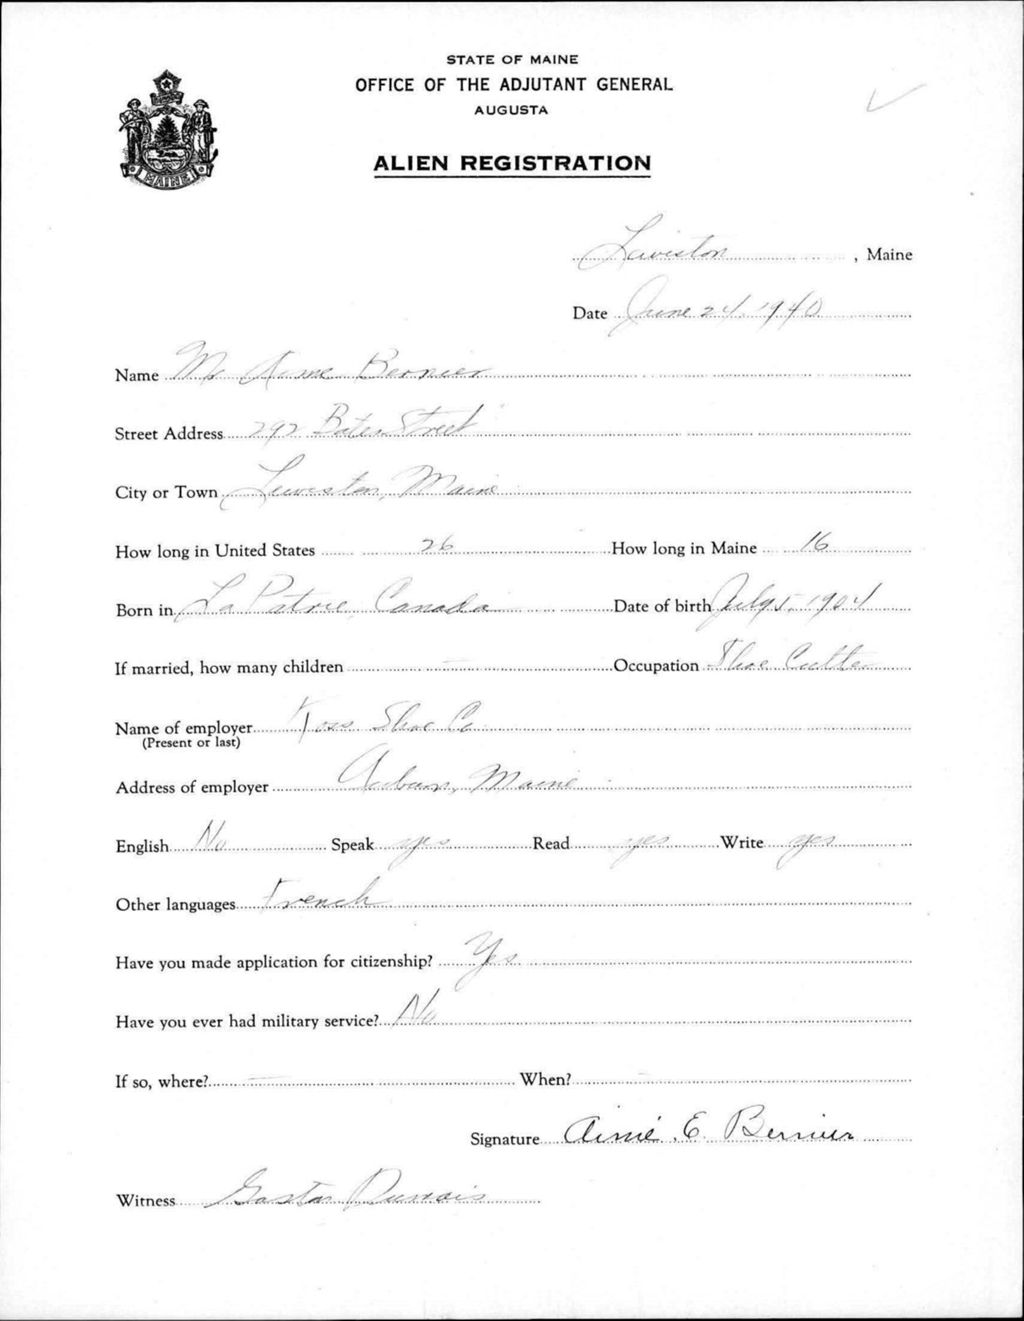 STATE OF MAINE
OFFICE OF THE ADJUTANT GENERAL
AUGUSTA
MAINE
ALIEN REGISTRATION
Lewiston, Maine
Date June 24, 1940
Name Mr Aime Bernier
Street Address 292 Bates Street
City or Town Lewiston, Maine
How long in United States 26 How long in Maine 16
Born in La Patrie, Canada Date of birth July 5, 1904
If married, how many children — Occupation Shoe Cutter
Name of employer Koss Shoe Co
(Present or last)
Address of employer Auburn, Maine
English No Speak yes Read yes Write yes
Other languages French
Have you made application for citizenship? Yes
Have you ever had military service? No
If so, where? — When? —
Signature Aimé E. Bernier
Witness